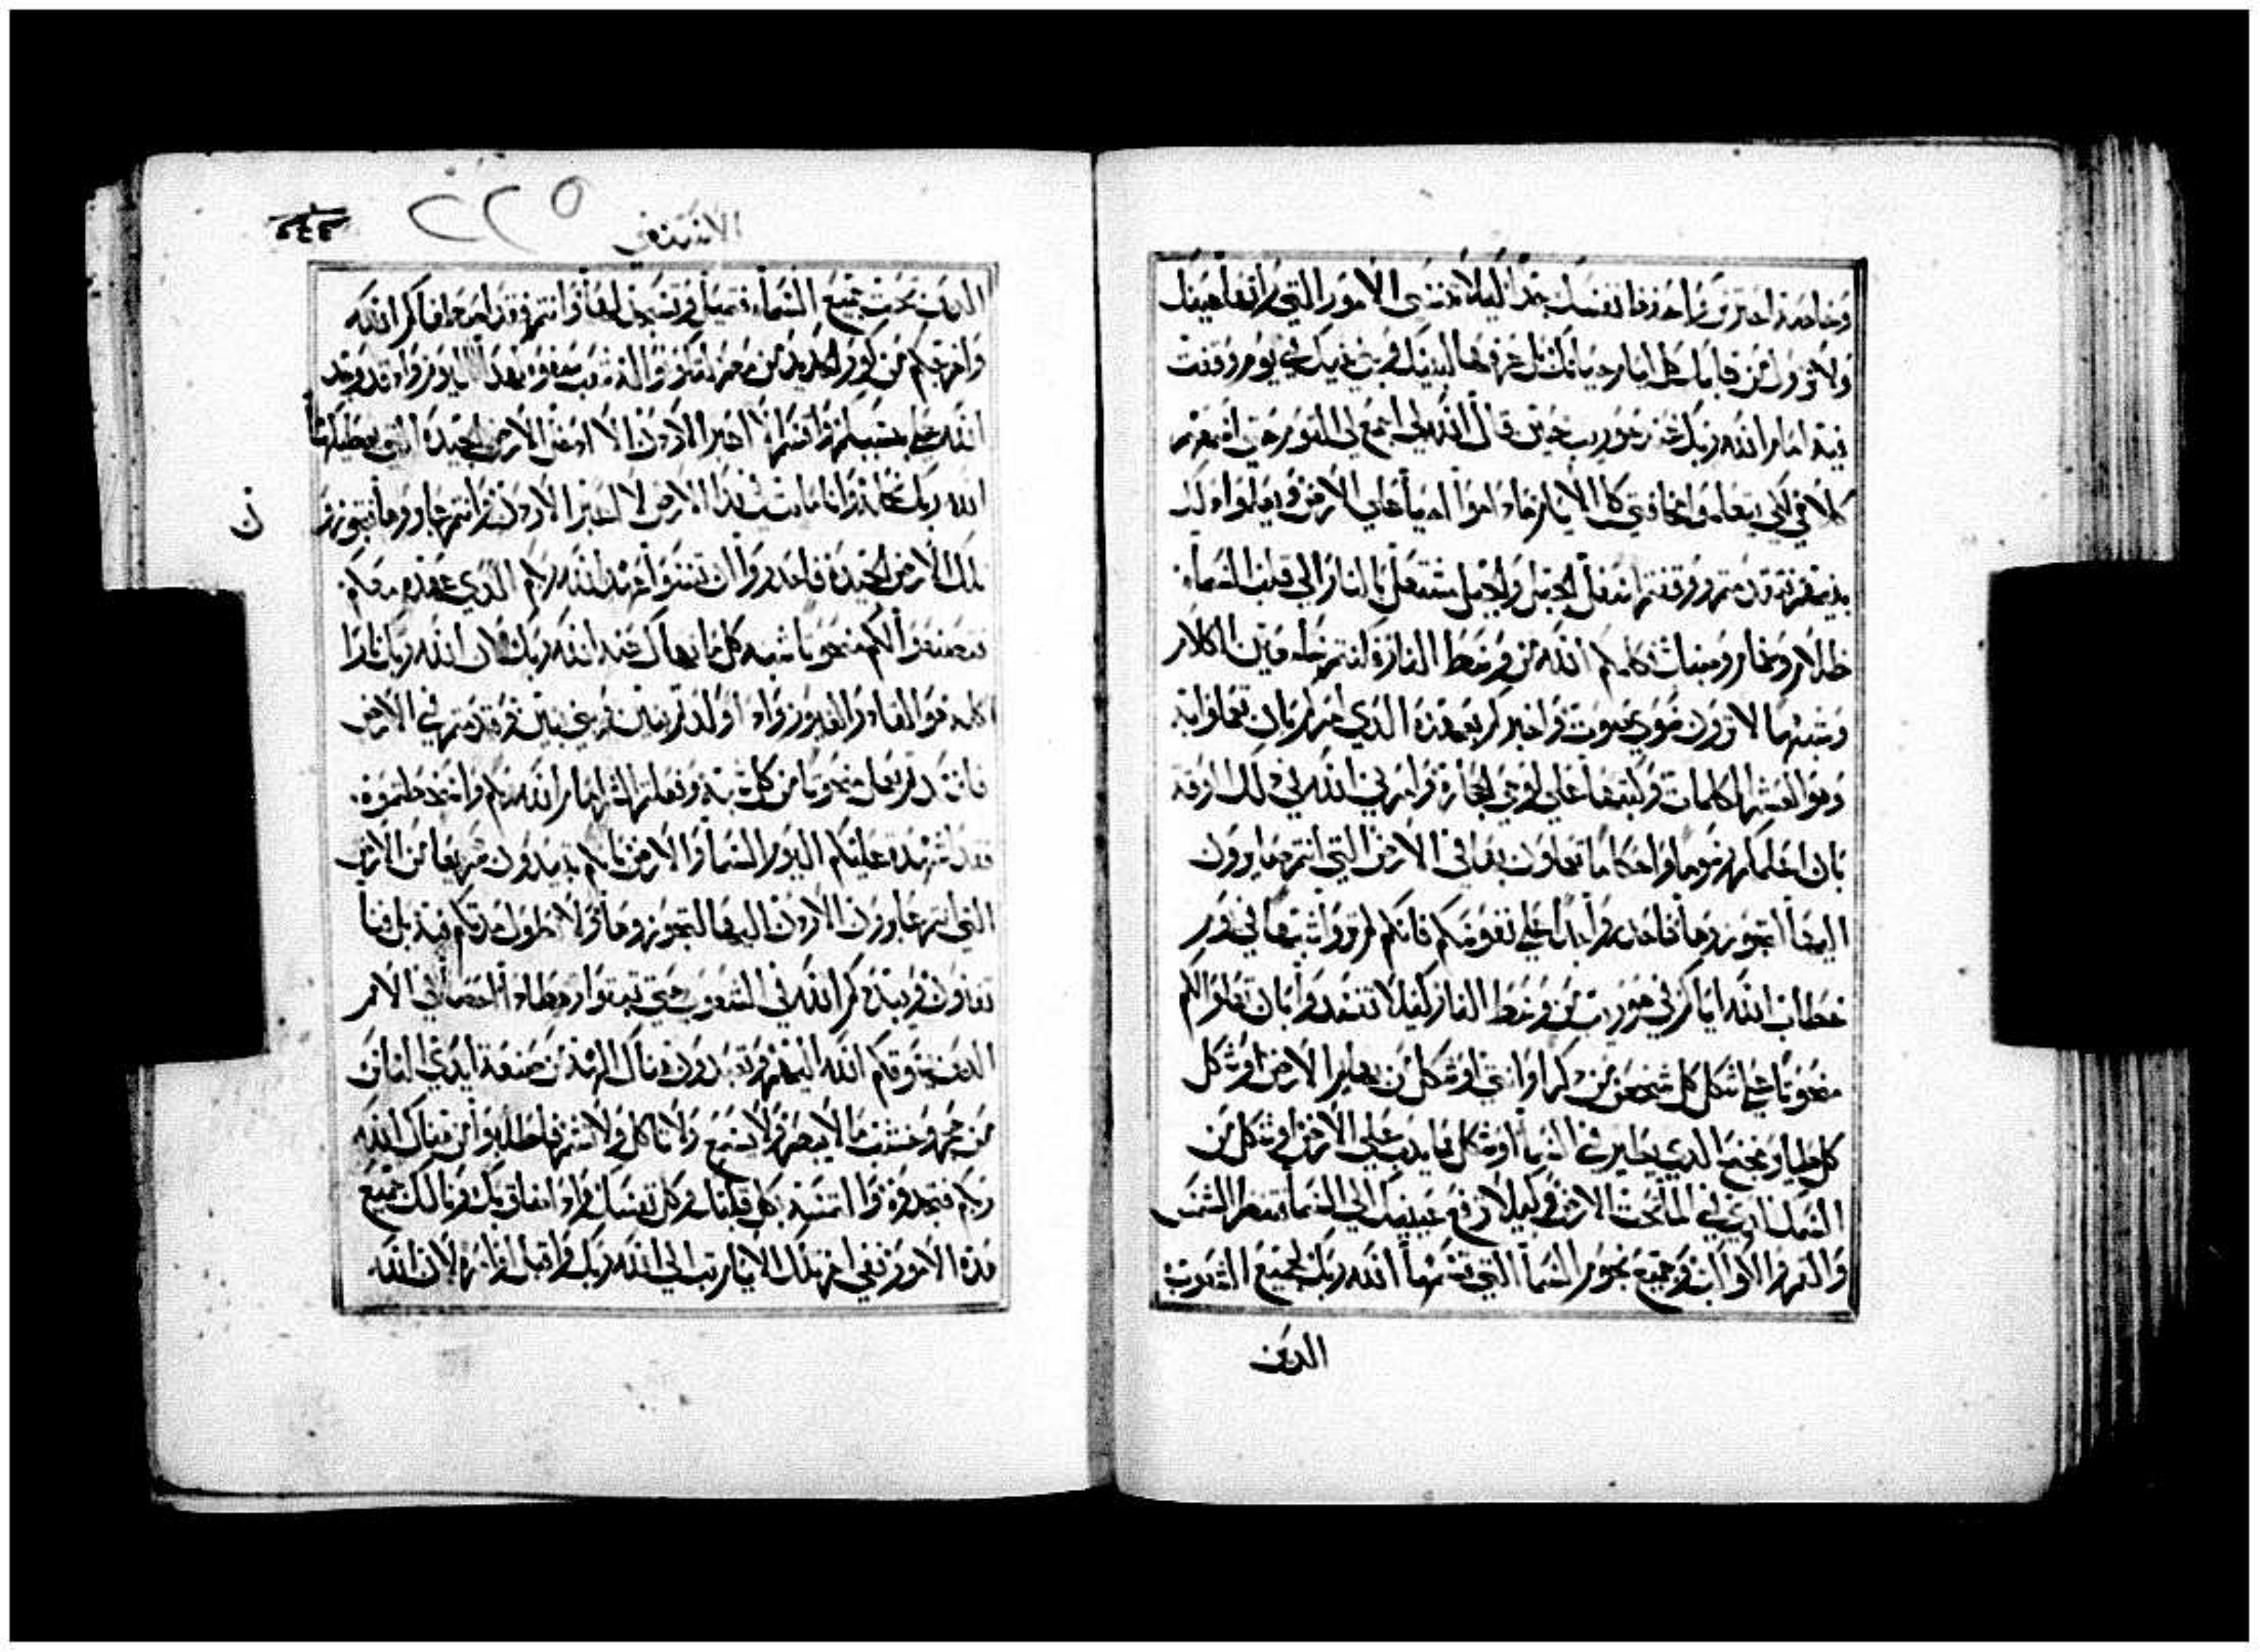 وخاصة احترز واحفظ نفسك جداً ليلا تنسى الامور التي راتها عيناك
ولا تزول من قلبك كل ايام حياتك بل عرفها لبنيك وبني بنيك في يوم وقفت
فيه امام الله ربك عند حوريب حين قال الله لي اجمع لي القوم حتى اسمعهم
كلامي لكي يتعلموا مخافتي كل الايام ما داموا احيا على الارض ويعلموا اولادهم
فتقدمتم ووقفتم اسفل الجبل والجبل مشتعل بالنار الى قلب السماء
ظلام وغمام وضباب فكلمكم الله من وسط النار انتم سامعين الكلام
وشبها لا ترون سوى صوت واخبركم بعهده الذي امركم بان تعملوا به
وهو العشر الكلمات وكتبها على لوحي حجارة وامرني الله في ذلك الوقت
بان اعلمكم رسوما واحكاما تعملون بها في الارض التي انتم عابرون
اليها لتحوزوها فاحذروا جدا على نفوسكم فانكم لم تروا شبها في يوم
خطاب الله اياكم في حوريب من وسط النار كيلا تفسدوا بان تعملوا لكم
منحوتا على شكل كل شخص من ذكر او انثى او شكل من بهايم الارض او شكل
كل طير بجناح الذي يطير في السما او شكل ما يدب على الارض او شكل من
السمك الذي في الما تحت الارض وكيلا ترفع عينيك الى السما فتنظر الشمس
والقمر والكواكب وجميع نجوم السما التي قسمها الله ربك لجميع الشعوب
الذين
الاستثنى
٢٢٥
الذين تحت جميع السماء فتميل وتسجد لها وانتم فقد اصطفاكم الله
واخرجكم من كور الحديد من مصر لتكونوا له شعب صفوة كهذا اليوم وقد وجد
الله علي بسببكم واقسم لا اعبر الاردن ولا ادخل الارض الجيدة التي يعطيكها
الله ربك نحلة وانا مايت في هذا الارض لا اعبر الاردن وانتم عابرون وتحوزون
تلك الارض الجيدة فاحذروا ان تنسوا عهد الله ربكم الذي عهده معكم
فتصنعوا لكم منحوتا شبه كل ما نهاك عنه الله ربك لان الله ربك نار
اكلة هو القادر الغيور واذا اولدتم بنين وبني بنين وقدمتم في الارض
فافسدتم بعمل منحوتا من كل شبه وفعلتم الشر امام الله ربكم واغضتموه
فقد اشهدت عليكم اليوم السما والارض بانكم تبيدون سريعا من الارض
التي انتم عابرون الاردن اليها لتحوزوها ولا تطول مدتكم فيها بل فنا
تفنون ويبددكم الله في الشعوب حتى تبقوا رهطا احصا في الامم
الذين يسوقكم الله اليهم وتعبدون هناك الهة من صنعة ايدي الناس
من حجر وخشب ما لا يبصر ولا يسمع ولا ياكل ولا يشم فاطلبوا من هناك الله
ربكم فتجدوه اذا التمسته بكل قلبك وكل نفسك واذا ضاق بك ونالك جميع
هذه الامور ففي اخر تلك الايام تب الى الله ربك واقبل اوامره لان الله